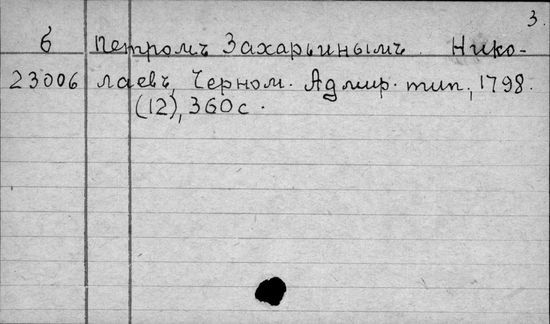 3.
б Петромъ Захарьинымъ. Нико-
23006 лаевъ, Черном. Адмир. тип., 1798.
(12), 360 с.